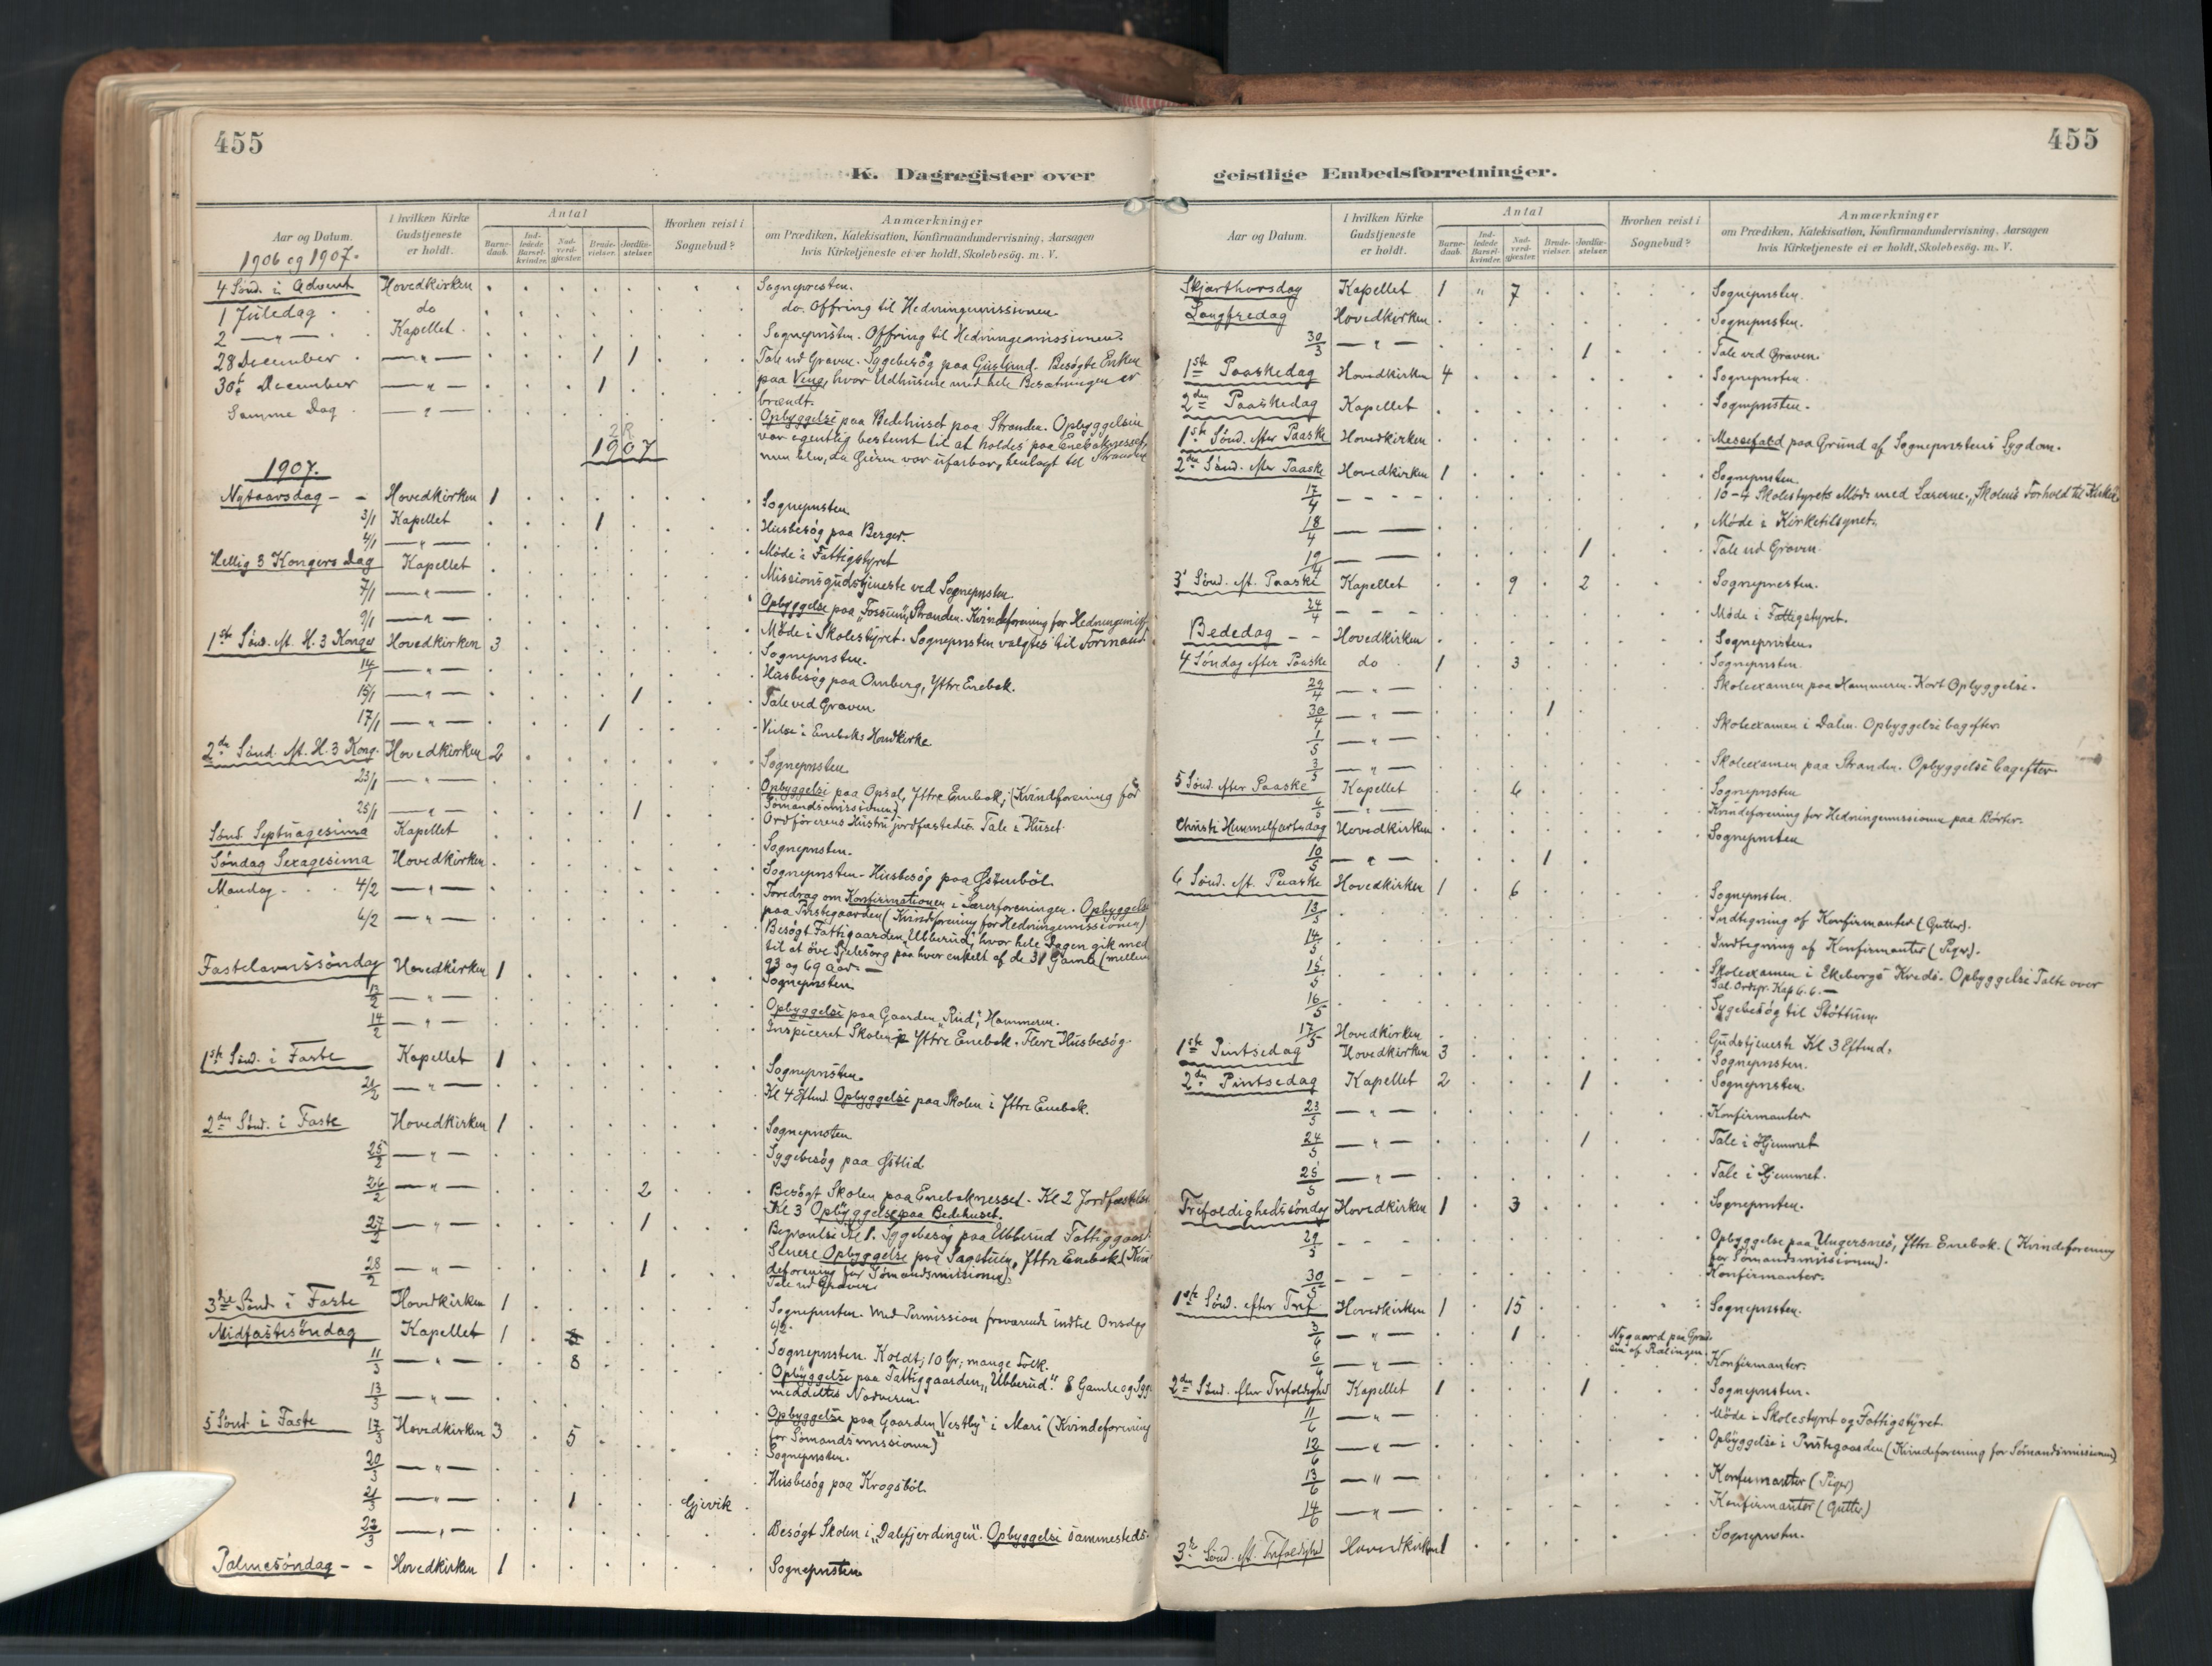 455
K. Dagregister over
Aar og Datum.
1906 og 1907.
I hvilken Kirke Gudstjeneste er holdt.
Antal
Barnedaab.
Indledede Barselkvinder.
Nadverdgjæster.
Brudevielser.
Jordfæstelser.
Hvorhen reist i Sognebud?
Anmærkninger
om Prædiken, Katekisation, Konfirmandundervisning, Aarsagen
hvis Kirketjeneste ei er holdt, Skolebesög. m. V.
4 Sönd. i Advent Hovedkirken Sognepresten.
1 Juledag do do. Offring til Hedningemissionen.
2 — " — Kapellet Sognepresten. Offring til Hedningemissionen.
28 December — " — 1 1 Tale ved Graven. Sygebesög paa Gislund. Besögte Enken
30te December — " — 1 paa Veng, hvor Udhusene med hele Besætningen er
brændt.
Samme Dag — " — Opbyggelse paa Bedehuset paa Stranden. Opbyggelsen
var egentlig bestemt til at holdes paa Enebaknesset,
men blev, da Gieren var ufarbar, henlagt til Stranden
2R
1907
1907.
Nytaarsdag – – Hovedkirken 1 Sognepresten.
3/1 Kapellet 1 Husbesög paa Berger.
4/1 — " — Möde i Fattigstyret
Hellig 3 Kongers Dag Kapellet Missionsgudstjeneste ved Sognepresten.
7/1 — " — Opbyggelse paa "Fossum", Stranden. Kvindeforening for Hedningemiss.
9/1 — " — Möde i Skolestyret. Sognepresten valgtes til Formand
1ste Sönd. eft. H. 3 Konger Hovedkirken 3 Sognepresten.
14/1 — " — Husbesög paa Omberg, Yttre Enebak.
15/1 — " — 1 Tale ved Graven.
17/1 — " — 1 Vielse i Enebaks Hovedkirke
2den Sönd. eft. H. 3 Kong. Hovedkirken 2 Sognepresten.
23/1 — " — Opbyggelse paa Opsal, Yttre Enebak, (Kvindforening for
Sömandsmissionen)
25/1 — " — 1 Ordförerens Hustru jordfæstedes. Tale i Huset
Sönd. Septuagesima Kapellet Sognepresten.
Söndag Sexagesima Hovedkirken Sognepresten. Husbesög paa Östenböl.
Mandag 4/2 — " — Foredrag om Konfirmationen i Lærerforeningen. Opbyggelse
paa Prestegaarden (Kvindforening for Hedningemissionen)
6/2 — " — Besögt Fattiggaarden "Ubberud", hvor hele Dagen gik med
til at öve Sjelesorg paa hver enkelt af de 31 Gamle (mellem
93 og 69 Aar. —
Fastelavnssöndag Hovedkirken 1 Sognepresten
13/2 — " — Opbyggelse paa Gaarden "Rud", Hammeren.
14/2 — " — Inspiceret Skolen p Yttre Enebak. Flere Husbesög.
1ste Sönd. i Faste Kapellet 1 Sognepresten.
21/2 — " — Kl 4 Eftmd. Opbyggelse paa Skolen i Yttre Enebak.
2den Sönd. i Faste Hovedkirken 1 Sognepresten
25/2 — " — Sygebesög paa Östlid.
26/2 — " — 2 Besögt Skolen paa Enebaknesset. Kl 2 Jordfæstelse
Kl 3 Opbyggelse paa Bedehuset.
27/2 — " — 1 Begravelse Kl 1. Sygebesög paa Ubberud Fattiggaard
Senere Opbyggelse paa Sagstuen, Yttre Enebak (Kvin
deforening for Sömandsmissionen).
28/2 — " — 1 Tale ved Graven.
3die Sönd. i Faste Hovedkirken 1 Sognepresten. Med Permission fraværende indtil Onsdag
6/2.
Midfastesöndag Kapellet 1 Sognepresten. Koldt; 10 Gr; mange Folk.
11/3 — " — 8 Opbyggelse paa Fattiggaarden "Ubberud". 8 Gamle og Syge
meddeltes Nadveren.
13/3 — " — Opbyggelse paa Gaarden "Vestby" i Mari (Kvindeforening
for Sömandsmissionen)
5 Sönd. i Faste 17/3 Hovedkirken 3 5 Sognepresten.
20/3 — " — Husbesög paa Krogsböl.
21/3 — " — 1 Gjevik
22/3 — " — Besögt Skolen i "Dalefjerdingen". Opbyggelse sammesteds.
Palmesöndag – – Hovedkirken 1 Sognepresten
455
geistlige Embedsforretninger.
Aar og Datum.
I hvilken Kirke Gudstjeneste er holdt.
Antal
Barnedaab.
Indledede Barselkvinder.
Nadverdgjæster.
Brudevielser.
Jordfæstelser.
Hvorhen reist i Sognebud?
Anmærkninger
om Prædiken, Katekisation, Konfirmandundervisning, Aarsagen
hvis Kirketjeneste ei er holdt, Skolebesög. m. V.
Skjærthorsdag Kapellet 1 " 7 Sognepresten.
Langfredag Hovedkirken Sognepresten.
30/3 — " — 1 Tale ved Graven.
1ste Paaskedag Hovedkirken 4 Sognepresten.
2den Paaskedag Kapellet Sognepresten.
1ste Sönd. efter Paaske Hovedkirken Messefald paa Grund af Sogneprestens Sygdom.
2den Sönd. efter Paaske Hovedkirken 1 Sognepresten.
17/4 – – – – 10–4 Skolestyrets Möde med Lærerne. "Skolens Forhold til Kirken"
18/4 — — Möde i Kirketilsynet.
19/4 — — 1 Tale ved Graven.
3' Sönd. eft. Paaske Kapellet 9 2 Sognepresten.
24/4 – – – Möde i Fattigstyret.
Bededag – – Hovedkirken Sognepresten.
4 Söndag efter Paaske do 1 3 Sognepresten.
29/4 — " — Skoleexamen paa Hammeren. Kort Opbyggelse.
30/4 — " — 1 Skoleexamen i Dalen. Opbyggelse bagefter.
1/5 — " —
3/5 — " — Skoleexamen paa Stranden. Opbyggelse bagefter.
5 Sönd. efter Paaske Kapellet 6 Sognepresten
6/5 — " — Kvindeforening for Hedningemissionen paa Börter.
Christi Himmelfartsdag Hovedkirken Sognepresten
10/5 — " — 1
6 Sönd. eft. Paaske Hovedkirken 1 6 Sognepresten.
13/5 Indtegning af Konfirmanter (Gutter).
14/5 Indtegning af Konfirmanter (Piger).
15/5 Skoleexamen i Ekebergs Kreds. Opbyggelse Talte over
Sal. Ordspr. Kap 6. 6. —
16/5 Sygebesög til Stöttum.
17/5 Hovedkirken Gudstjeneste Kl 3 Eftmd.
1ste Pintsedag Hovedkirken 3 Sognepresten.
2den Pintsedag Kapellet 2 1 Sognepresten.
23/5 — " — Konfirmanter
24/5 — " — 1 Tale i Hjemmet
25/5 — " — Tale i Hjemmet.
Trefoldighedssöndag Hovedkirken 1 3 Sognepresten.
29/5 – – – Opbyggelse paa Ungersnes, Yttre Enebak. (Kvindeforening
for Sömandsmissionen).
30/5 – – – Konfirmanter.
1ste Sönd. efter Tref. Hovedkirken 1 15 Sognepresten.
3/6 — " — 1 Nygaard paa Græn-
sen af Rælingen.
6/6 — " — Konfirmanter.
2den Sönd. efter Trefoldighed Kapellet 1 1 Sognepresten.
11/6 — " — Möde i Skolestyret og Fattigstyret.
12/6 — " — Opbyggelse i Prestegaarden (Kvindeforening for Sömandsmissionen)
13/6 — " — Konfirmanter (Piger)
14/6 — " — Konfirmanter (Gutter)
3die Sönd. eft. Trefoldighed Hovedkirken 1 Sognepresten.